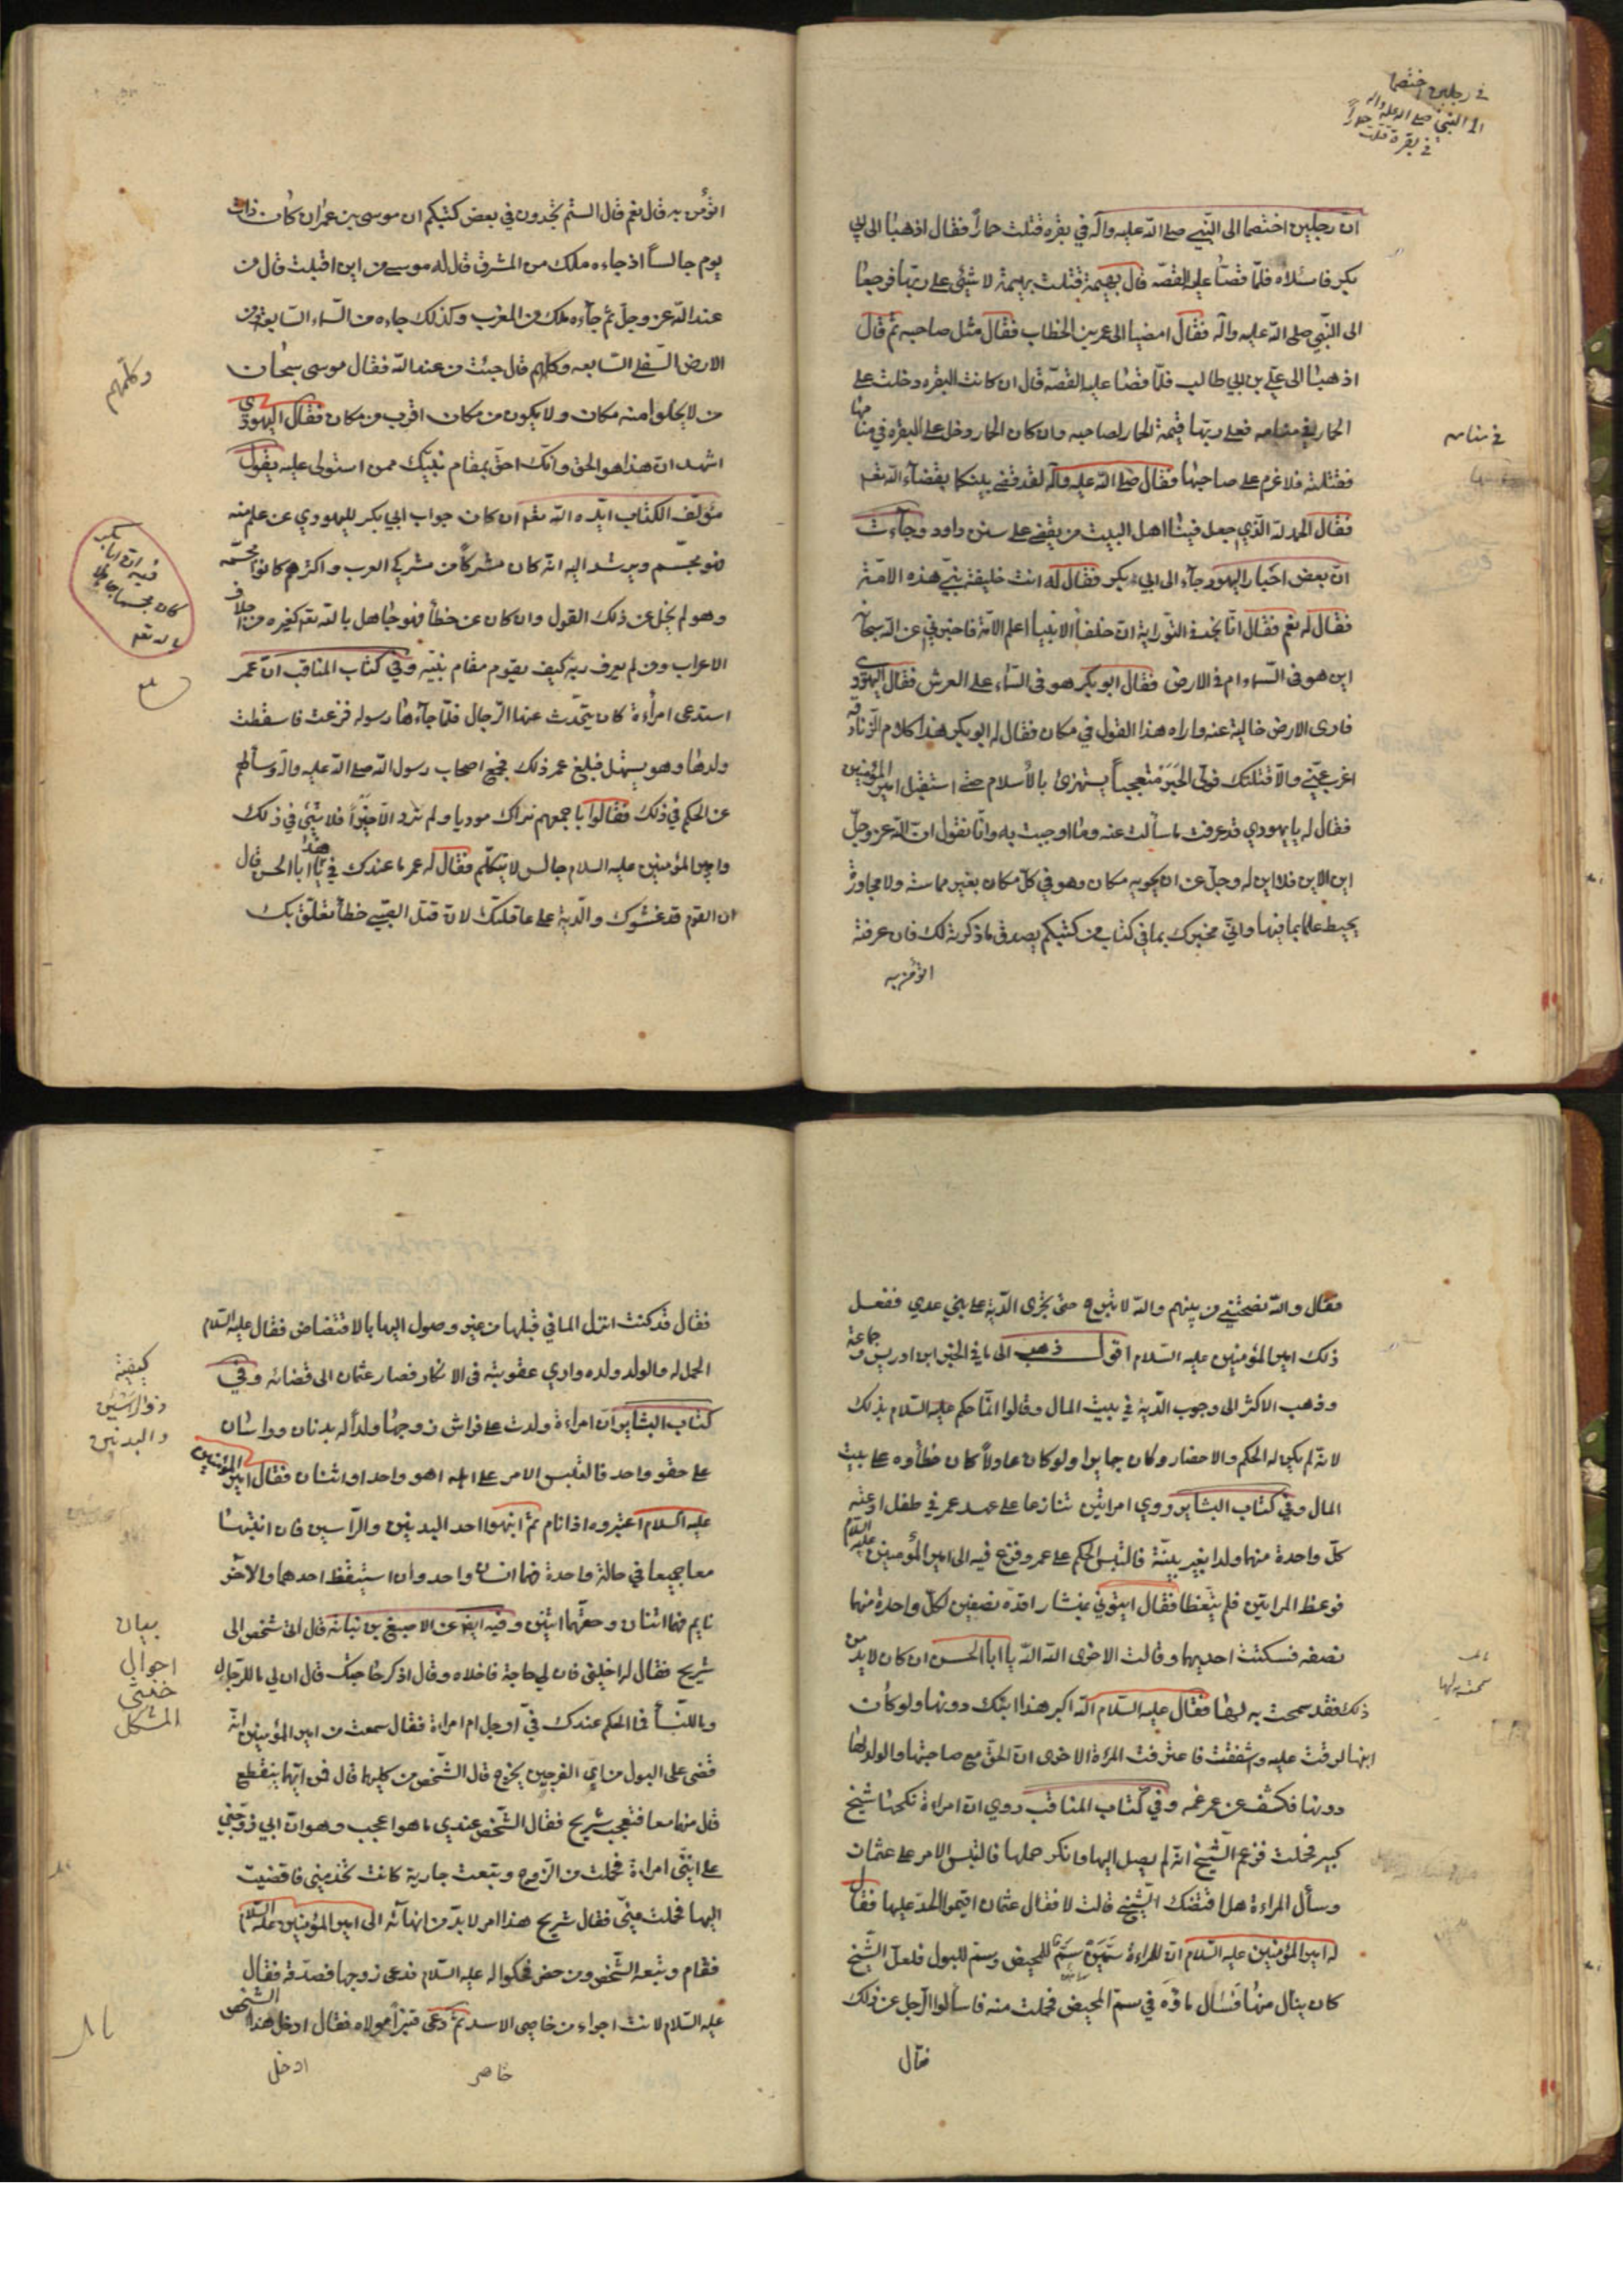 في رجلين اختصما
الى النبي صلى الله عليه واله
في بقرة قتلت حماراً
ان رجلين اختصما الى النّبي صلى الله عليه وآله في بقره قتلت حماراً فقال اذهبا الى ابي
بكر فاسئلاه فلمّا قصّا عليه القصّه قال بهيمة قتلت بهيمة لا شئ على ربّها فرجعا
الى النّبي صلى الله عليه واله فقال امضيا الى عمر بن الخطاب فقال مثل صاحبه ثم قال
اذهبا الى علي بن ابي طالب فلمّا قصّا عليه القصّه قال ان كانت البقره دخلت على
الحمار في منامه فعلى ربّها قيمة الحمار لصاحبه وان كان الحمار دخل على البقره في منامها
في منامه
فقتلته فلا غرم على صاحبها فقال صلى الله عليه وآله لقد قضى بينكما بقضآء الله تعم
فقال الحمد لله الّذي جعل فينا اهل البيت من يقضي على سنن داود وجآءت
انّ بعض احبار اليهود جآء الى ابي بكر فقال له انت خليفة نبي هذه الامّة
فقال له نعم فقال انّا نجد في التّوراية انّ خلفآ الانبيا اعلم الامّة فاخبرني عن الله سبحانه
اين هو في السّماء ام في الارض فقال ابو بكر هو في السّماء على العرش فقال اليهودي
فارى الارض خالية عنه واراه هذا القول في مكان فقال له ابو بكر هذا كلام الزّنادقه
اغرب عنّي والّا قتلتك فولّى الحَبر متعجباً يستهزئ بالأسلام حتى استقبل امير المؤمنين
فقال له يا يهودي قد عرفت ما سألت عنه وما اوجبت به وانّا نقول انّ الله عزوجلّ
اين الاين فلا اين له وجلّ عن ان يحويه مكان وهو في كلّ مكان بغير مماسة ولا مجاورة
يحيط علما بما فيها واني مخبرك بما في كتاب من كتبكم يصدق ما ذكرته لك فان عرفته
اتؤمن به
اتؤمن به قال نعم قال الستم تجدون في بعض كتبكم ان موسى بن عمران كان ذات
يوم جالساً اذ جاءه ملك من المشرق قال له موسى من اين اقبلت قال من
عند الله عز وجلّ ثم جآءه ملك من المغرب وكذلك جاءه من السّماء السّابعة ومن
الارض السّفلى السّابعه وكلهم قال جئت من عند الله فقال موسى سبحان
وكلّهم
من لا يخلوا منه مكان ولا يكون من مكان اقرب من مكان فقال اليهودي
اشهد ان هذا هو الحق وانّك احقّ بمقام نبيّك ممن استولى عليه يقول
مؤلّف الكتاب ايّده الله تعم ان كان جواب ابي بكر لليهودي عن علم منه
فهو مجسّم ويرشد اليه انّه كان مشركاً من مشركي العرب واكثرهم كانوا مجسّمة
فيه ان ابا بكر
كان مجسما جاهلا
بالله تعم
وهو لم يخل عن ذلك القول وان كان عن خطأ فهو جاهل بالله تعم كغيره من اجلاف
الاعراب ومن لم يعرف ربّه كيف يقوم مقام نبيّه وفي كتاب المناقب انّ عمر
استدعى امرأة كان يتحدّث عندها الرّجال فلمّا جآءها رسوله فزعت فاسقطت
ولدها وهو يستهل فبلغ عمر ذلك فجمع اصحاب رسول الله صلى الله عليه واله وسألهم
عن الحكم في ذلك فقالوا باجمعهم نراك موديا ولم ترد الّا خيراً فلا شئ في ذلك
وامير المؤمنين عليه السلام جالس لا يتكلّم فقال له عمر ما عندك في هذا يا ابا الحسن قال
ان القوم قد غشوك والدّية على عاقلتك لانّ قتل الصبي خطأ تعلّق بك
فقال والله نصحتني من بينهم والله لا تبرح حتى تجرى الدّية على بني عدي ففعل
ذلك امير المؤمنين عليه السّلام اقول ذهب الى ما في الخبر ابن ادريس وجماعة
وذهب الاكثر الى وجوب الدّية في بيت المال وقالوا انّما حكم عليه السّلام بذلك
لانّه لم يكن له الحكم والاحضار وكان جايرا ولو كان عادلاً كان خطأوه على بيت
المال وفي كتاب البشاير روي امراتين تنازعا على عهد عمر في طفل ادعته
كلّ واحدة منهما ولدا بغير بيّنة فالتبس الحكم على عمر وفزع فيه الى امير المؤمنين عليه السّلام
فوعظ المراتين فلم يتّعظا فقال ايتوني بمنشار اقدّه نصفين لكلّ واحدة منهما
نصفه فسكتت احديهما وقالت الاخرى الله الله يا ابا الحسن ان كان لابد من
ذلك فقد سمحت به لها فقال عليه السّلام الله اكبر هذا ابنك دونها ولو كان
سمحت به لها
ابنها لرقت عليه وشفقت فاعترفت المرأة الاخرى انّ الحقّ مع صاحبتها والولد لها
دونها فكشف عن عمر غمه وفي كتاب المناقب روي انّ امراءة نكحها شيخ
كبير فحملت فزعم الشّيخ انّه لم يصل اليها وانكر حملها فالتبس الامر على عثمان
وسأل المراءة هل افتضك الشّيخ قالت لا فقال عثمان اقيموا الحدّ عليها فقال
له امير المؤمنين عليه السّلام انّ للمراءة سمّين سمّ للمحيض وسم للبول فلعلّ الشّيخ
كان ينال منها فسال ماؤه في سم المحيض فحملت منه فاسألوا الرّجل عن ذلك
فقال
فقال قد كنت انزل الما في قبلها من غير وصول اليها بالافتضاض فقال عليه السّلام
الحمل له والولد ولده واري عقوبته في الانكار فصار عثمان الى قضائه وفي
كيفية
ذو الراسين
والبدنين
كتاب البشاير انّ امراءة ولدت على فراش زوجها ولداً له بدنان وراسان
على حقو واحد فالتبس الامر على اهله اهو واحد او اثنان فقال امير المؤمنين
عليه السلام اعتبروه اذا نام ثمّ انبهوا احد البدنين والرّاسين فان انتبها
معا جميعا في حالة واحدة فهما انسان واحد وان استيقظ احدهما والآخر
نايم فهما اثنان وحقّهما اثنين وفيه ايضا عن الاصبغ بن نباته قال اتى شخص الى
بيان
احوال
خنثى
المشكل
شريح فقال له اخلني فان لي حاجة فاخلاه وقال اذكر حاجتك قال ان لي ما للرّجال
وما للنّسآ فما الحكم عندك فيّ ارجل ام امراءة فقال سمعت من امير المؤمنين انّه
قضى على البول من اي الفرجين يخرج قال الشّخص من كليهما قال فمن ايّهما ينقطع
قال منهما معا فتعجب شريح فقال الشّخص عندي ما هو اعجب وهو انّ ابي زوّجني
على انّني امراءة فحملت من الزّوج وتبعت جارية كانت تخدمني فافضيت
اليها فحملت منّي فقال شريح هذا امر لابدّ من انهائه الى امير المؤمنين عليه السّلام
فقام وتبعه الشّخص ومن حضر فحكوا له عليه السّلام فدعى زوجها فصدّقه فقال
عليه السّلام لانت اجراء من خاصي الاسد ثمّ دعى قنبراً مولاه فقال ادخل هذا الشخص
خاصي
ادخل